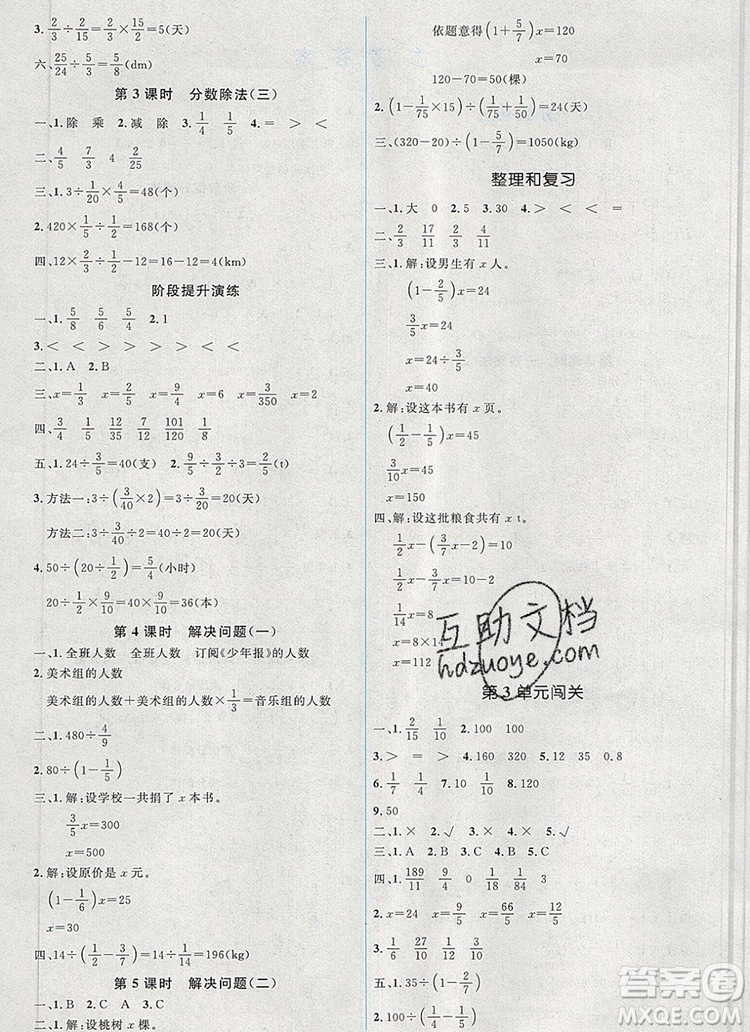 3. 2/3÷2/15=2/3×15/2=5(天)
六、25/24÷5/8=5/3(dm)
第 3 课时 分数除法(三)
一、1. 除 乘 2. 减 除 3. 1/4 1/5 4. = > <
二、4/5 7/3 4 25/4
三、1. 3÷1/20×4/5=48(个)
2. 420×1/5÷1/2=168(个)
四、12×2/3÷1/2-12=16-12=4(km)
阶段提升演练
一、1. 5/8 5/6 5/4 2. 1
3. < < > > > > < <
二、1. A 2. B
三、x=1/2 x=2/5 x=9/4 x=6 x=3/350 x=4/3
四、3/10 12/25 12/7 101/120 1/18
五、1. 24÷3/5=40(支) 2. 9/5÷3/5÷3=1(t)
3. 方法一:3÷(3/40×2)=3÷3/20=20(天)
方法二:3÷3/40÷2=40÷2=20(天)
4. 50÷(20÷1/2)=5/4(小时)
20÷1/2×9/10=40×9/10=36(本)
第 4 课时 解决问题(一)
一、1. 全班人数 全班人数 订阅《少年报》的人数
2. 美术组的人数
美术组的人数+美术组的人数×1/3=音乐组的人数
二、1. 480÷9/10
2. 80÷(1-1/5)
三、1. 解:设学校一共捐了 x 本书。
3/5x=300
x=500
2. 解:设原价是 x 元。
(1-1/6)x=25
x=30
四、14÷(1/2-3/7)=14÷1/14=196(kg)
第 5 课时 解决问题(二)
一、1. B C A D 2. B
二、1. 解:设桃树 x 棵。
依题意得(1+5/7)x=120
x=70
120-70=50(棵)
2. (1-1/75×15)÷(1/75+1/50)=24(天)
三、(320-20)÷(1-5/7)=1050(kg)
整理和复习
一、1. 大 0 2. 5 3. 30 4. > < < =
二、2/3 17/11 2/11 4/5
三、1. 解:设男生有 x 人。
(1-2/5)x=24
3/5x=24
x=24÷3/5
x=40
2. 解:设这本书有 x 页。
(1/2-1/5)x=45
3/10x=45
x=150
四、解:设这批粮食共有 x t。
1/2x-(3/7x-2)=10
1/2x-3/7x=10-2
1/14x=8
x=8×14
x=112
第 3 单元闯关
一、1. 2/15 9/10 2. 100 100
3. > = > 4. 160 320 5. 12 35 0.8
6. 1/7 1/4 7. 4/9 1/10 8. 120
9. 50
二、1. × 2. √ 3. × 4. × 5. √
三、1. C 2. A 3. C 4. B 5. C
四、1. 189/11 9/4 0 4/9 1/5
2. x=2/9 x=9/100 x=66/5 x=12/55
互助文档
hdzuoye.com
答案圈
MXQE.COM